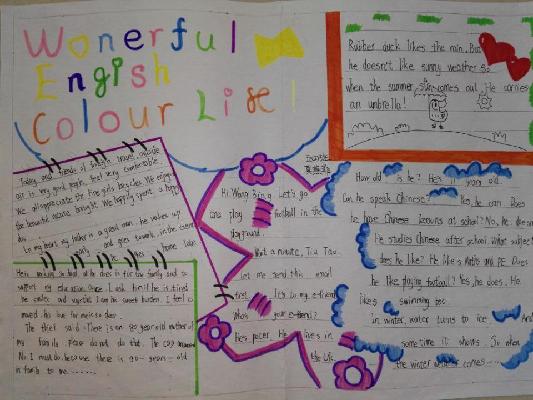 Wonerful
Engish
Colour Life!
Rubber duck likes the rain. But
he doesn't like sunny weather so
when the summer comes out. He carries
an unbrella!
Today and friends of
all is very good begin, feel very comfortable.
We all appreciate the five girls
the beautiful music brought. We happily spent a happy
day.
In my heart my father is a good man. He wakes up
early and goes to work, in the
comes home late.
He is working so hard, while does it for the family and to
support my education. Once I ask him if he is tired
he smiles and says that I am the sweet burden. I feel so
moved his love for me is so deep.
The thief said: There is an 80 year old mother of
my family. Please do not do that. The cop
No I must do. because there is 90-year-old
in family to me......
Hi Wang Bing. Let's go
and play football in the
playground.
Wait a minute, Tu Tao.
Let me send this email
first. It's to my e-friend.
Who's your e-friend?
He's peter. He lives in
the UK.
How old is he? He's 11 years old.
Can he speak Chinese? Yes, he can. Does
he have Chinese lessons at school? No, he doesn't
He studies Chinese after school. What subjects
does he like? He likes Maths and PE. Does
he like playing football? Yes, he does. He
likes swimming too.
In winter, water turns to ice. And
sometime it shows. So when
the winter comes